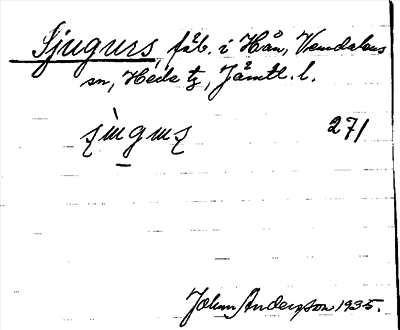 Sjugurs, fäb. i Hån, Vemdalens
sn, Heds tg, Jämtl. l.
271
Johan Anderson 1935.